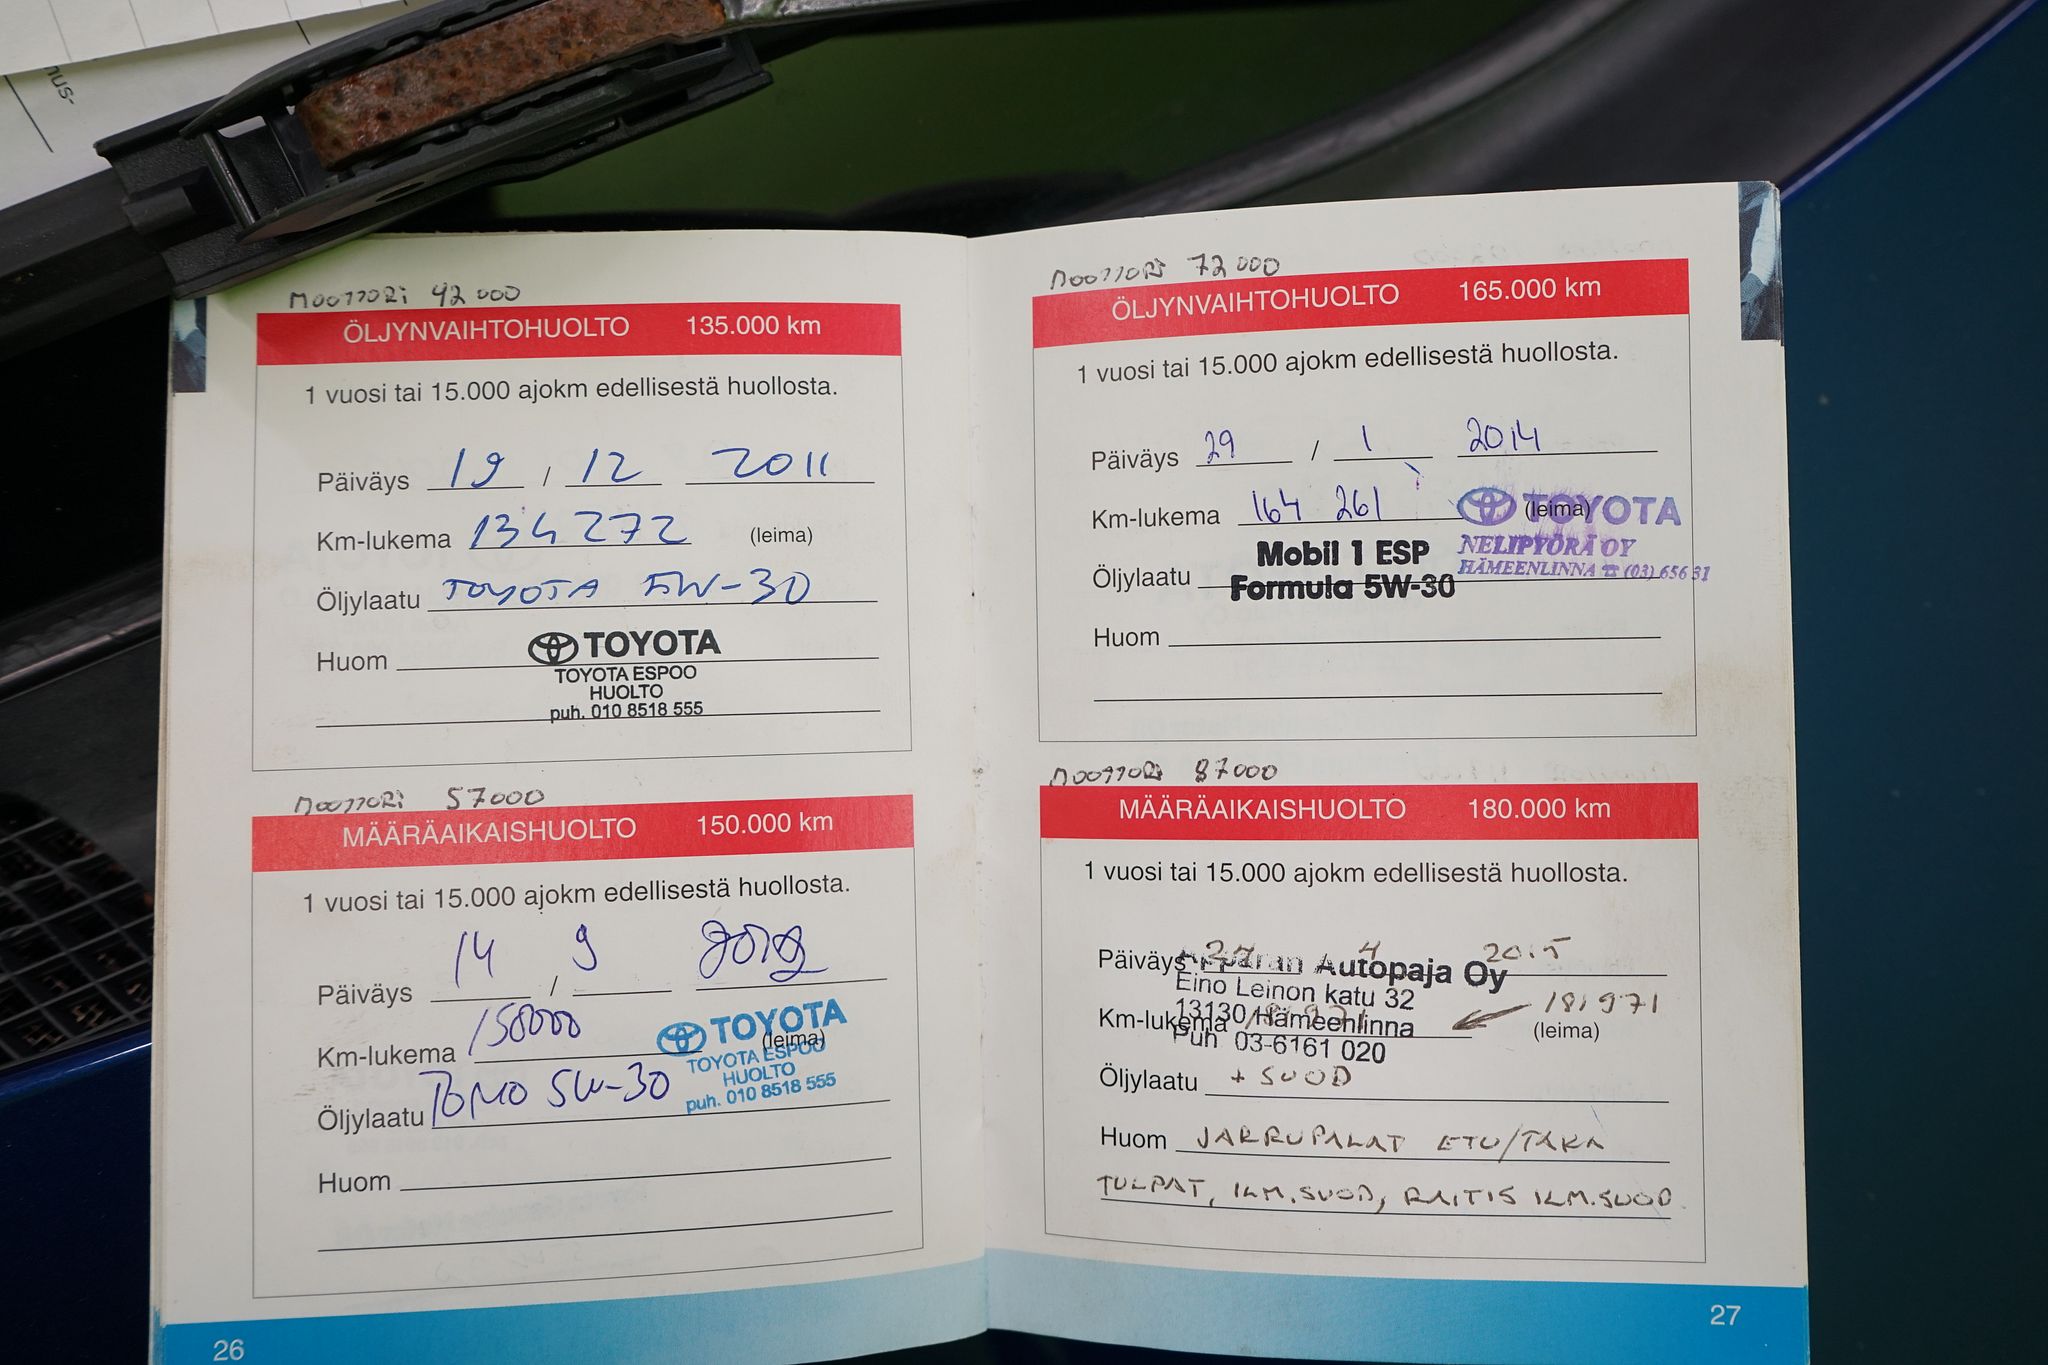 nus-
MOOTTORI 42 000
ÖLJYNVAIHTOHUOLTO 135.000 km
1 vuosi tai 15.000 ajokm edellisestä huollosta.
Päiväys 19 / 12 2011
Km-lukema 134 272 (leima)
Öljylaatu TOYOTA 5W-30
Huom
TOYOTA
TOYOTA ESPOO
HUOLTO
puh. 010 8518 555
MOOTTORI 57000
MÄÄRÄAIKAISHUOLTO 150.000 km
1 vuosi tai 15.000 ajokm edellisestä huollosta.
Päiväys 14 / 9 2012
Km-lukema 150000 (leima)
TOYOTA
TOYOTA ESPOO
HUOLTO
puh. 010 8518 555
Öljylaatu 5W-30
Huom
26
MOOTTORI 72 000
ÖLJYNVAIHTOHUOLTO 165.000 km
1 vuosi tai 15.000 ajokm edellisestä huollosta.
Päiväys 29 / 1 2014
Km-lukema 164 261 (leima)
TOYOTA
NELIPYÖRÄ OY
HÄMEENLINNA ☎ (03) 656 31
Öljylaatu Mobil 1 ESP
Formula 5W-30
Huom
MOOTTORI 87000
MÄÄRÄAIKAISHUOLTO 180.000 km
1 vuosi tai 15.000 ajokm edellisestä huollosta.
Päiväys 27 4 2015
Autopaja Oy
Eino Leinon katu 32
13130 Hämeenlinna
Puh 03-6161 020
Km-lukema 181971 (leima)
Öljylaatu + SUOD
Huom JARRUPALAT ETU/TAKA
TULPAT, ILM.SUOD, RAITIS ILM.SUOD
27